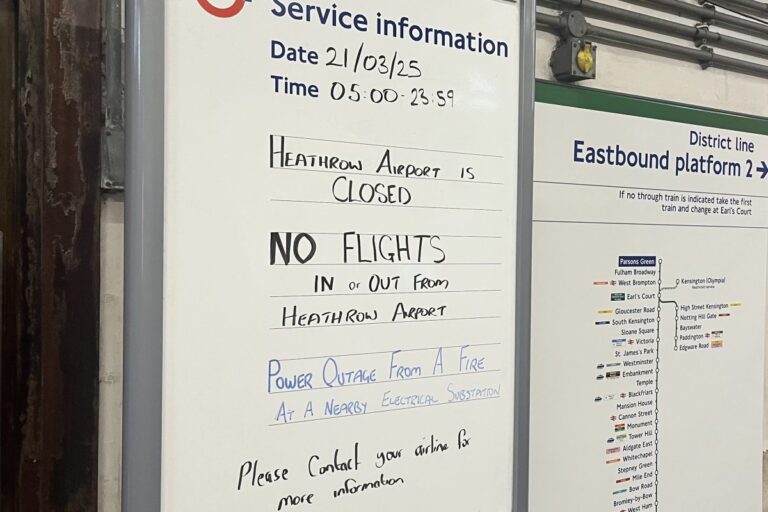 Service information
Date 21/03/25
Time 05:00-23:59
HEATHROW AIRPORT IS
CLOSED
NO FLIGHTS
IN or OUT FROM
HEATHROW AIRPORT
POWER OUTAGE FROM A FIRE
AT A NEARBY ELECTRICAL SUBSTATION
Please Contact your airline for
more information
District line
Eastbound platform 2
If no through train is indicated take the first
train and change at Earl's Court
Parsons Green
Fulham Broadway
West Brompton
Kensington (Olympia)
Earl's Court
Gloucester Road
High Street Kensington
South Kensington
Notting Hill Gate
Sloane Square
Bayswater
Victoria
Paddington
St. James's Park
Edgware Road
Westminster
Embankment
Temple
Blackfriars
Mansion House
Cannon Street
Monument
Tower Hill
Aldgate East
Whitechapel
Stepney Green
Mile End
Bow Road
Bromley-by-Bow
West Ham